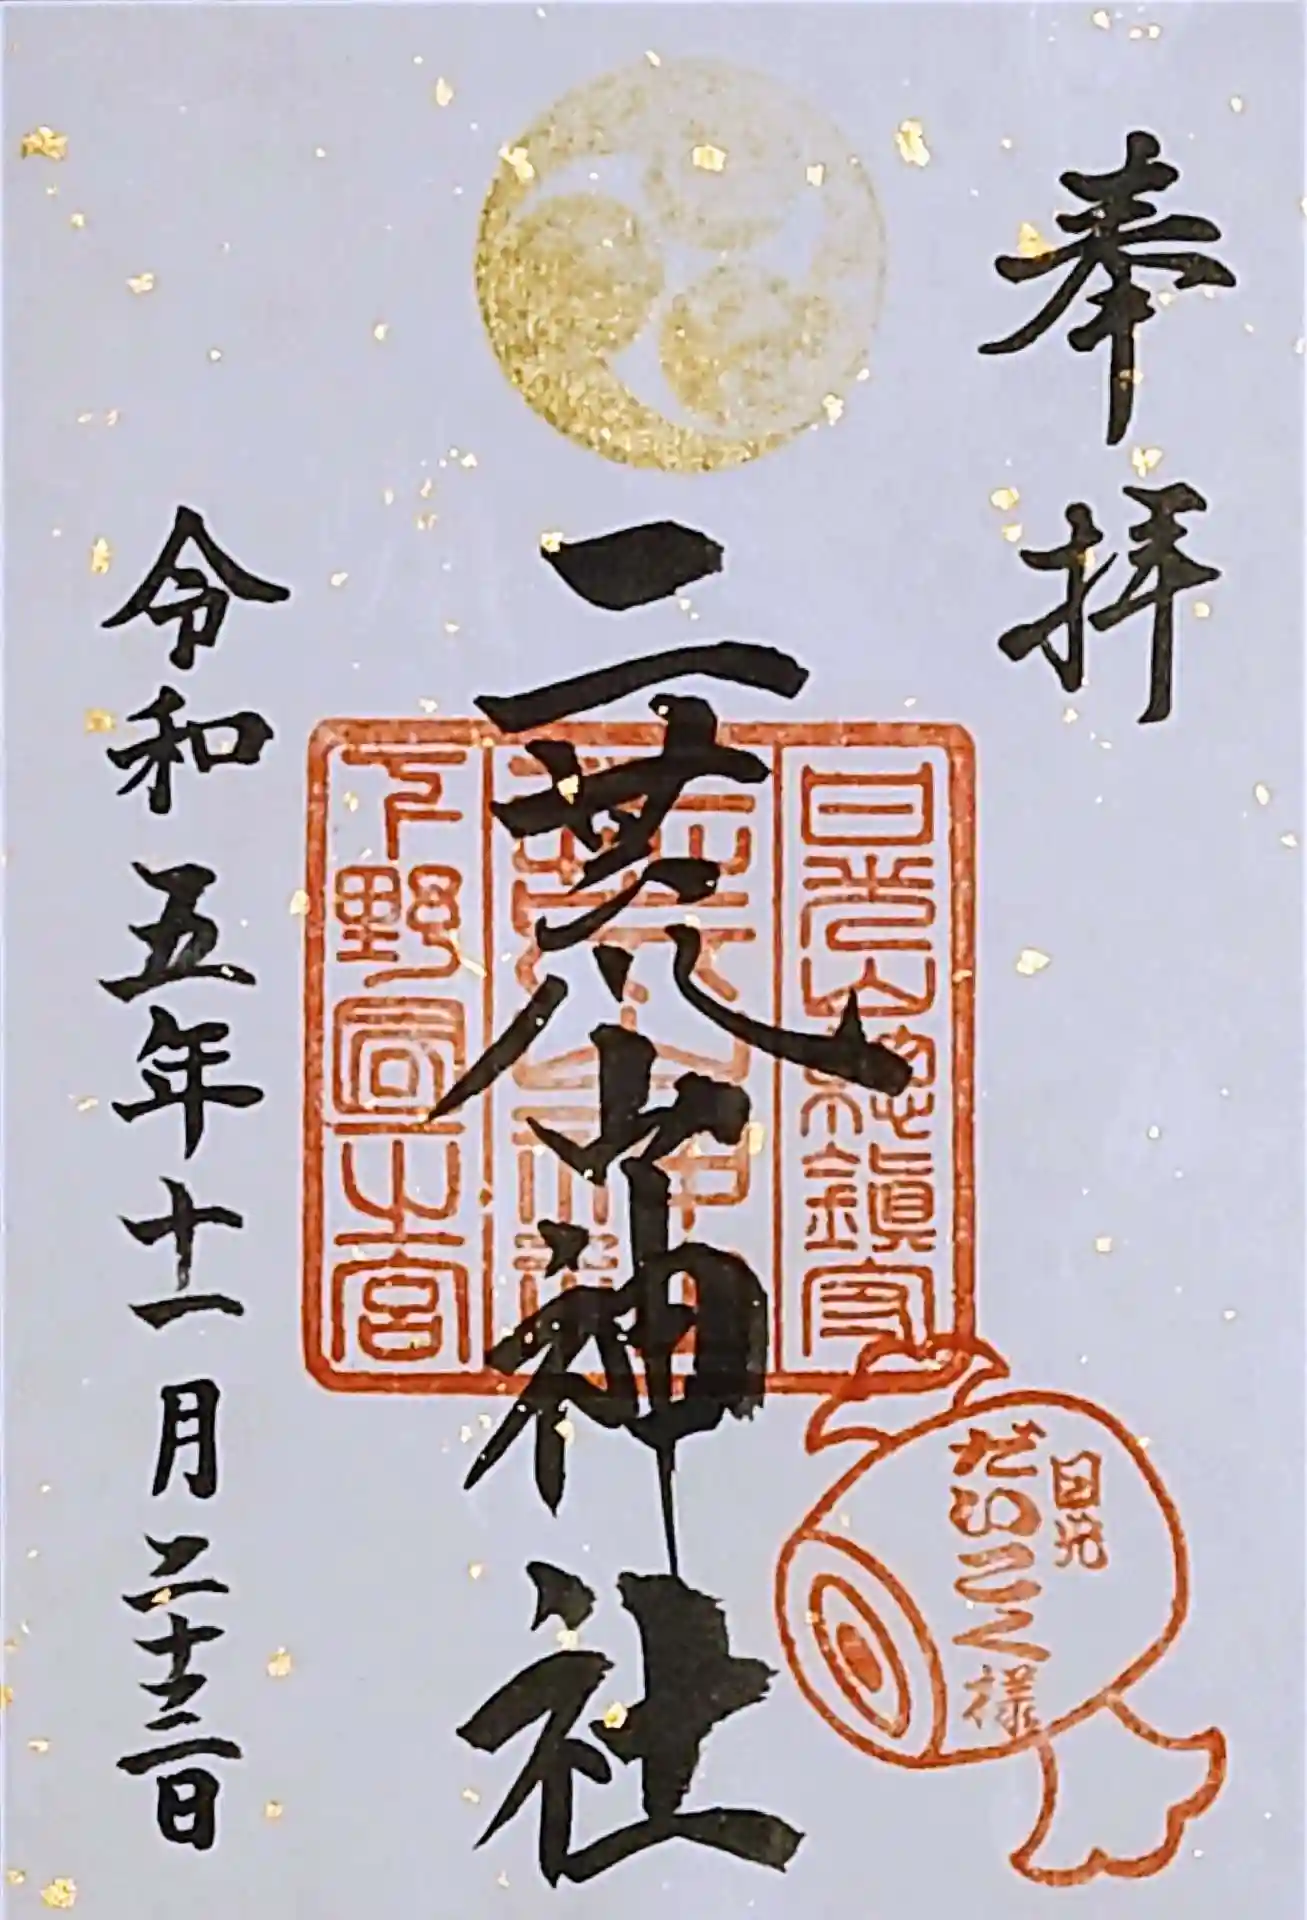 奉拝
二荒山神社
令和五年十一月二十三日
日光山總鎮守
下野國一之宮
日光
だいこく様